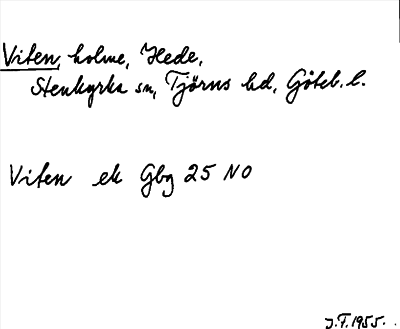 Viten, holme, Hede,
Stenkyrka sn, Tjörns hd, Göteb. l.
Viten ek Gbg 25 NO
J.F. 1955.